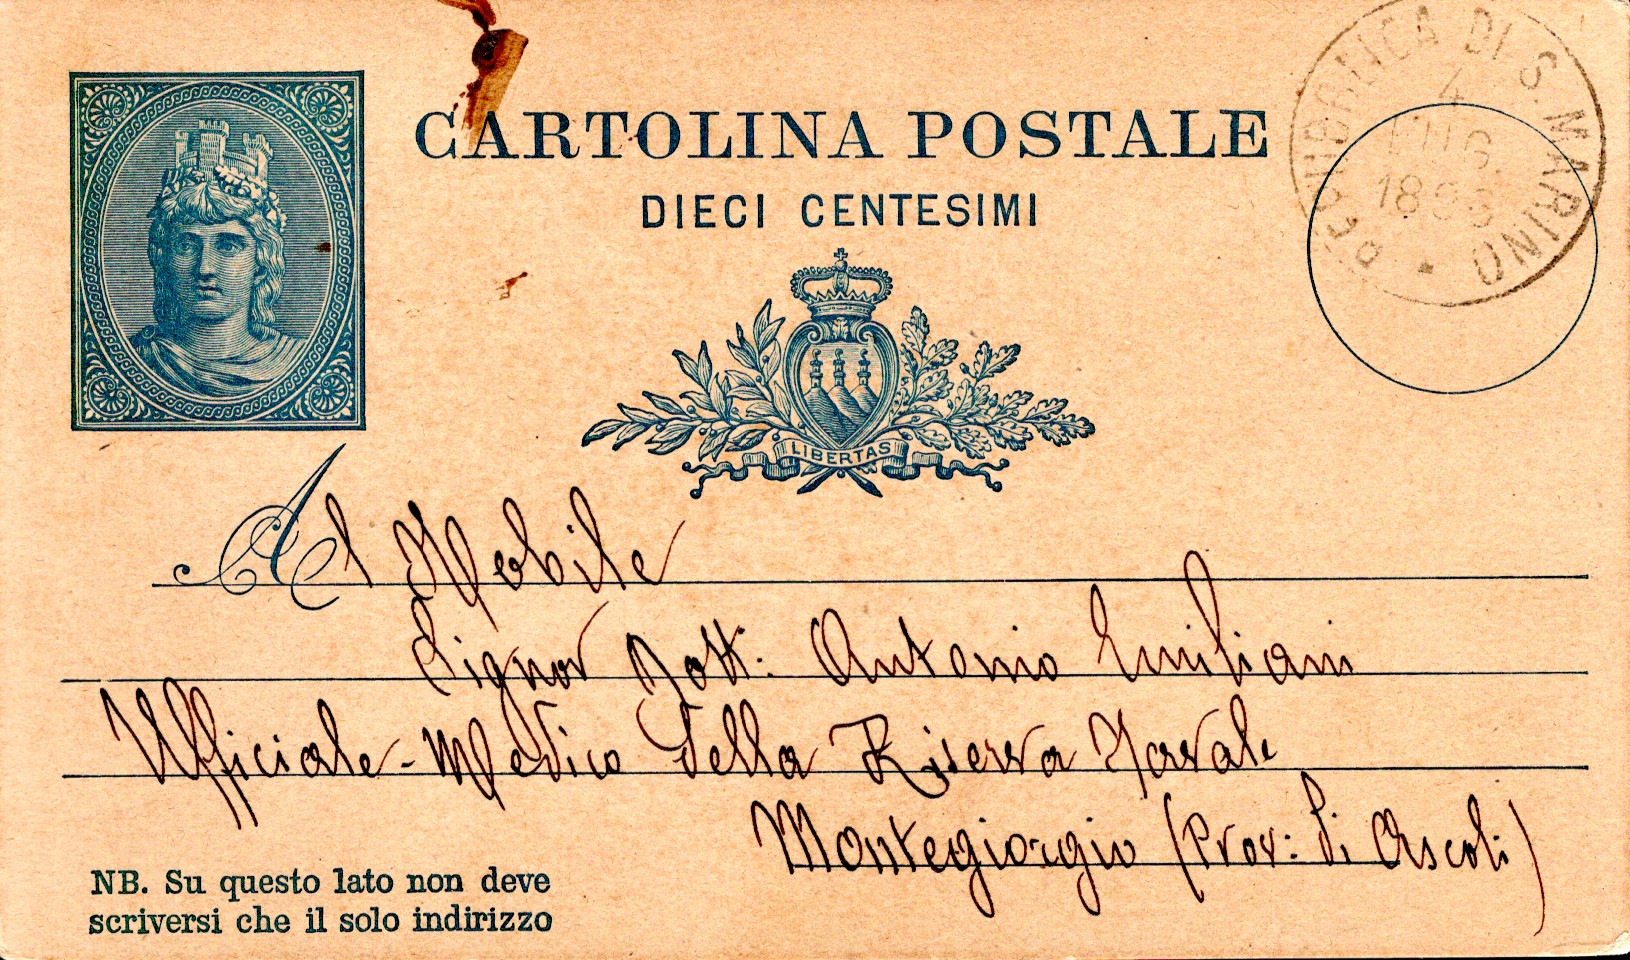 CARTOLINA POSTALE
DIECI CENTESIMI
REPUBBLICA DI S. MARINO
4
LUG.
LIBERTAS
Al Nobile
Signor Dott: Antonio Emiliani
Ufficiale-Medico della Riserva Navale
Montegiorgio (Prov: di Ascoli)
NB. Su questo lato non deve
scriversi che il solo indirizzo